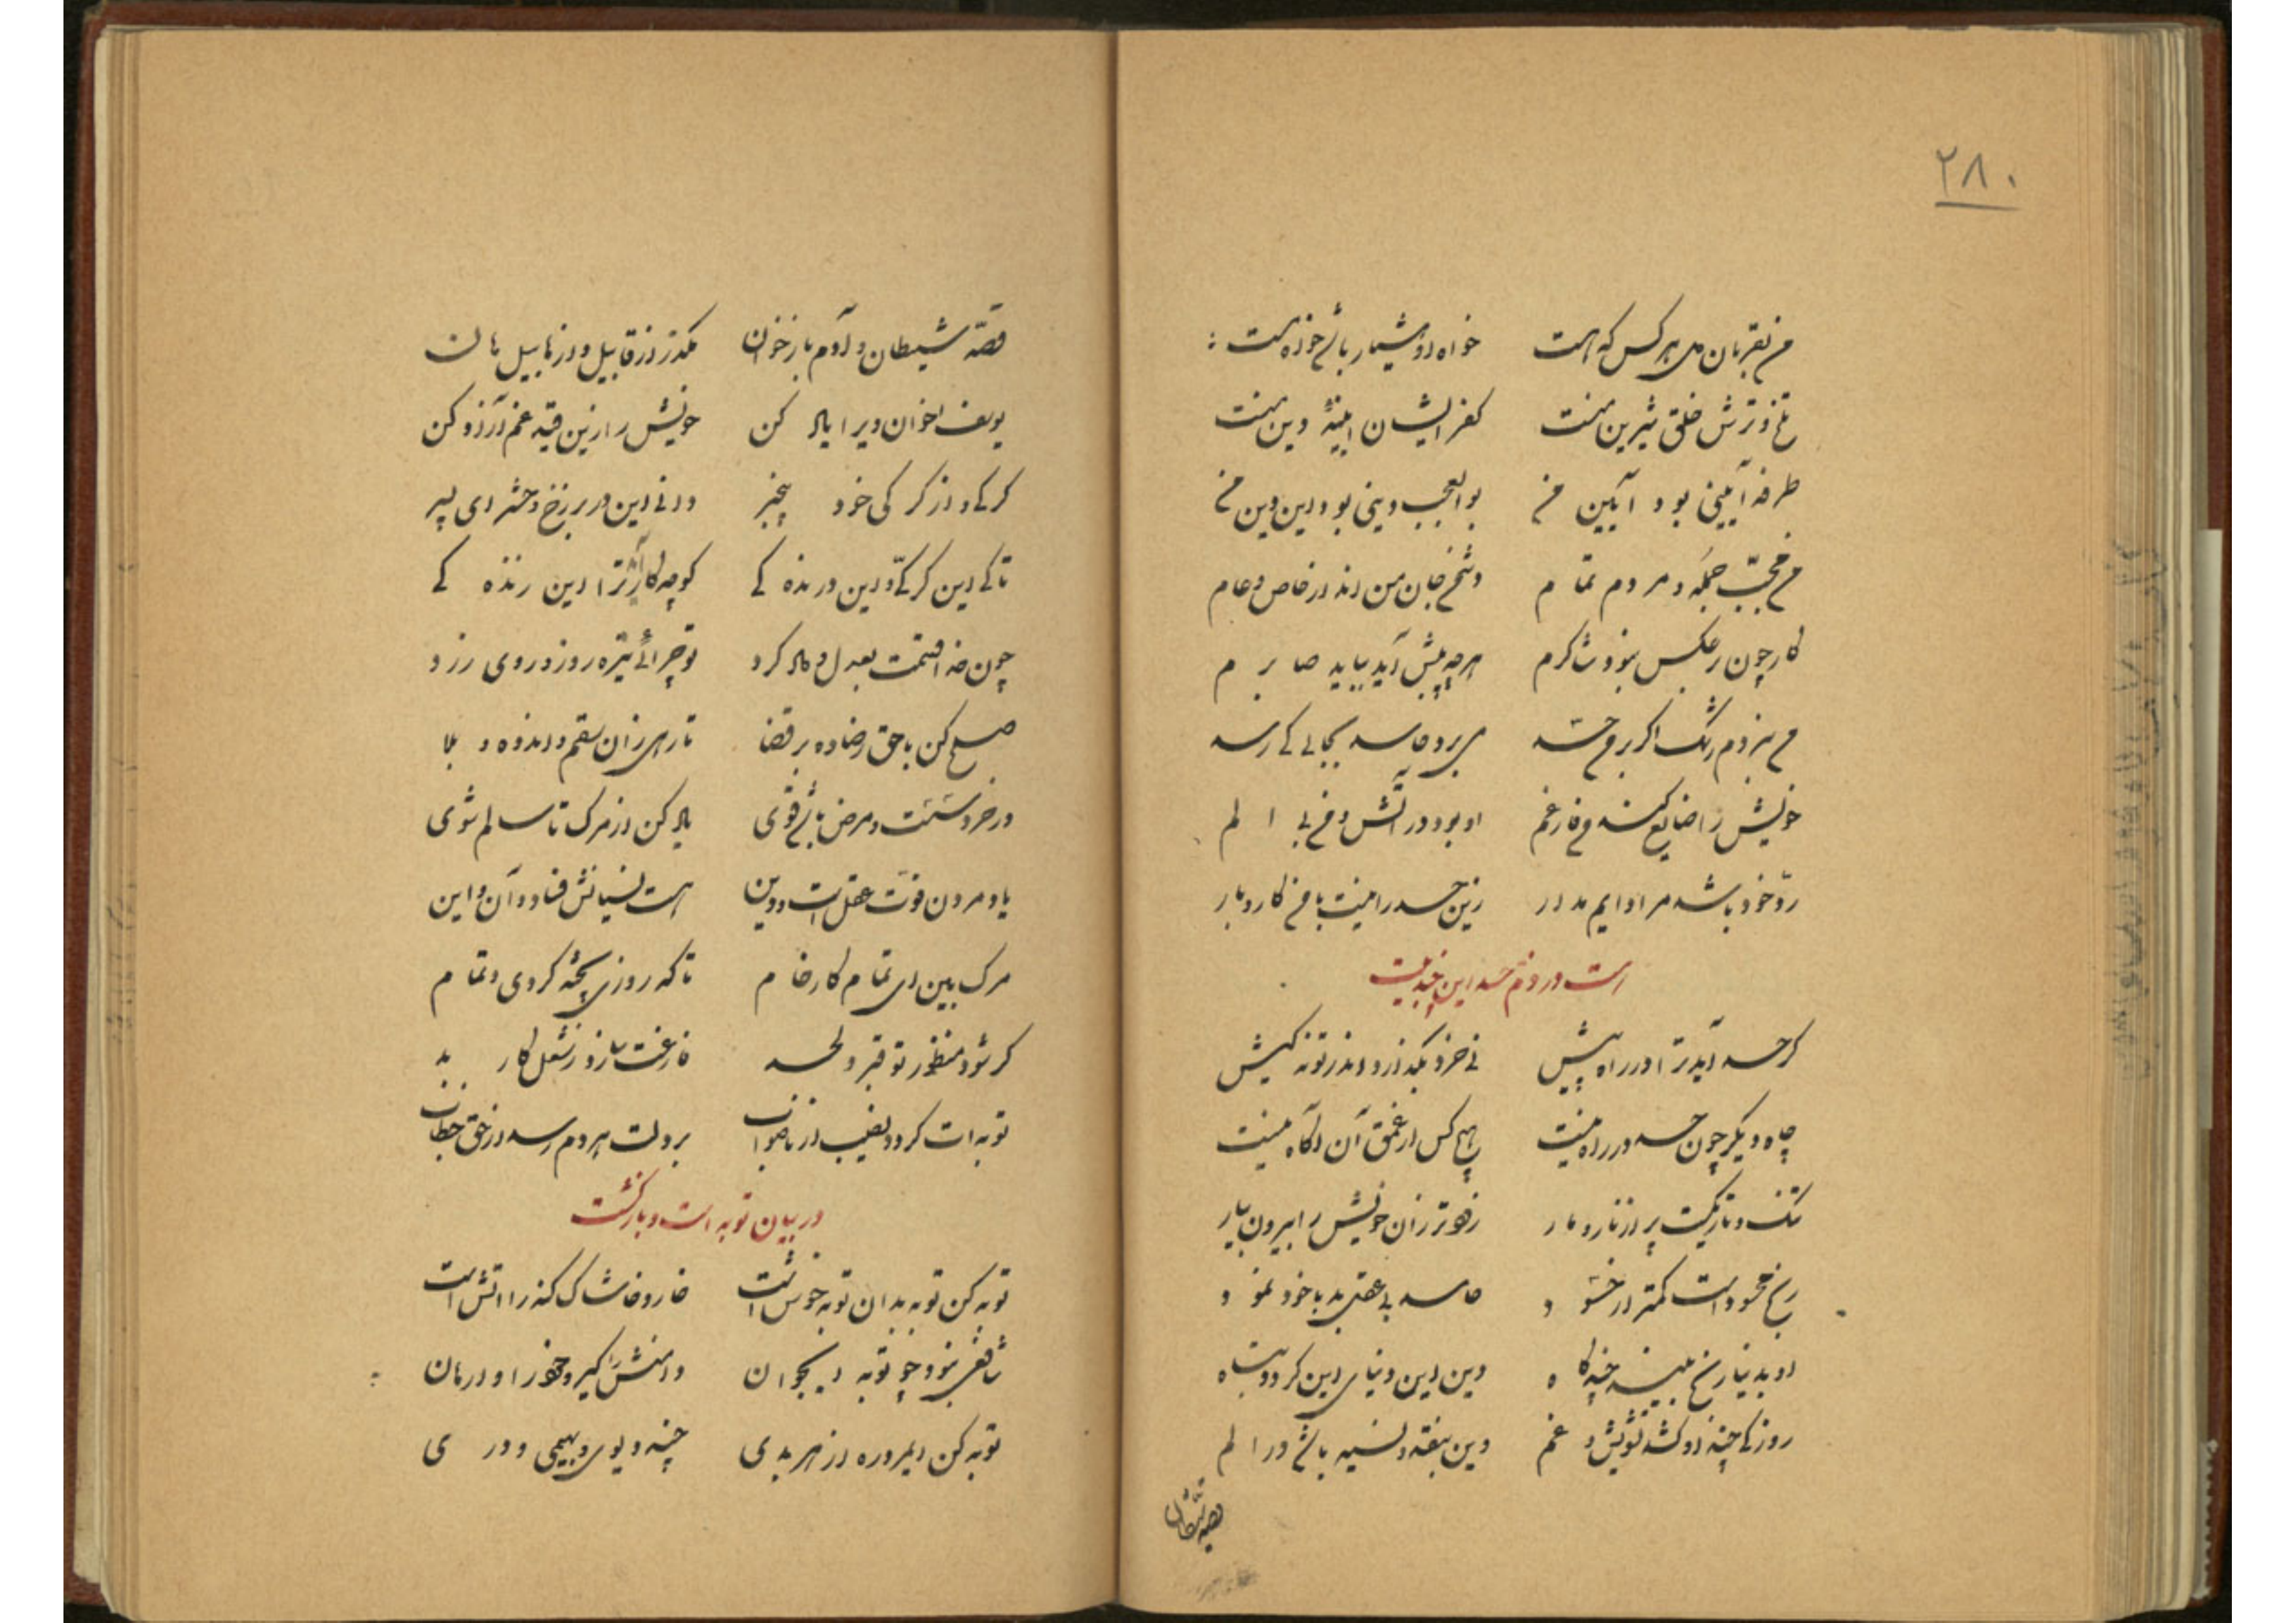 ۲۸۰
من بقربان دل هر کس که هست خواه او هشیار باشد خواه مست
تلخ و ترش خلق شیرین منست کفر ایشان آینهٔ دین منست
طرفه آیینی بود آیین من بوالعجب دینی بود این دین من
من محبّ جمله و مردم تمام دشمن جان من اند از خاص و عام
کار چون بر عکس بنمود شاکرم هرچه پیش آید بیاید صابرم
من نبردم رشک اگر بر من حسد می برد حاسد بجایی کی رسد
خویش را ضایع کند من فارغم او بود در آتش و من بی الم
ردّ خود باشد مرا دایم مدار زین حسد را نیست با من کار و بار
است در ذم حسد این چند بیت
گر حسد آید ترا در راه پیش نی خرد بگذارد اندر تو نه کیش
چاه دیگر چون حسد در راه نیست هیچ کس از عمق آن آگاه نیست
تنگ و تاریکست پر از نار و مار زودتر زان خویش را بیرون بیار
رنج محسود است کمتر از حسود حاسد بی عقل بد با خود نمود
او بدنیا رنج بیند چند گاه دین این دنیای این گردد تباه
روزکی چند او کشد تشویش و غم وین بنقد و نسیه باشد در الم
قصه شیطان
قصّه شیطان و آدم باز خوان مگذر از قابیل و از هابیل هان
یوسف اخوان ویرا یاد کن خویش را زین قید غم آزاد کن
گرگی و از گرگی خود بیخبر دانی این در برزخ و حشر ای پسر
تا کی این گرگی و این درنده کی کو چه کار آید ترا این زنده کی
چون خدا قسمت بعدل و داد کرد تو چرائی تیره روز و روی زرد
صلح کن با حق رضا ده بر قضا تا رهی زان سقم و اندوه و بلا
در خرد سست و مرض باشد قوی یاد کن از مرگ تا سالم شوی
یاد مردن قوّت عقل است و دین هست نسیانش فساد آن و این
مرگ بین ای تمام کار خام تا که روزی پخته گردی و تمام
گر شود منظور تو قبر و لحد فارغت سازد ز شغل کار بد
توبه ات گردد نصیب از ناصواب بر دلت هر دم رسد از حق خطاب
در بیان توبه است و بازگشت
توبه کن توبه بدان توبه خوش است خار و خاشاک گنه را آتش است
شافعی نبود چو توبه ای جوان دامنش را گیر و خود را وارهان
توبه کن امروزه از هر بدی چند دیوی و بهیمی و ددی